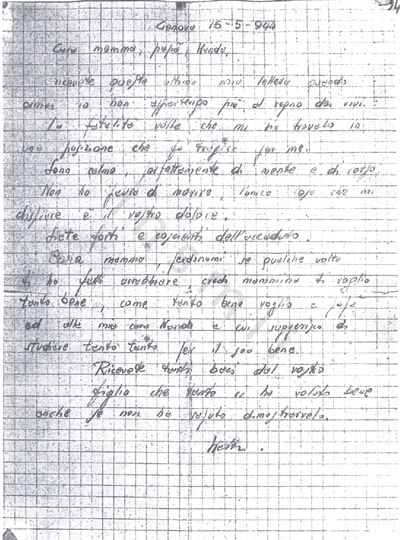 Genova 16-5-944
Cara mamma, papà, Nanda,
ricevete questa ultima mia lettera quando
ormai io non appartengo più al regno dei vivi.
La fatalità volle che mi ha trovato in
una posizione che fu tragica per me.
Sono calmo, perfettamente di mente e di corpo.
Non ho paura di morire, l'unica cosa che mi
dispiace è il vostro dolore.
Siate forti e coscienti dell'accaduto.
Cara mamma, perdonami se qualche volta
ti ho fatto arrabbiare, credi mammina ti voglio
tanto bene, come tanto bene voglio a papà
ed alla mia cara Nanda a cui suggerisco di
studiare tanto tanto per il suo bene.
Ricevete tanti baci dal vostro
figlio che tanto vi ha voluto bene
anche se non ha saputo dimostrarvelo.